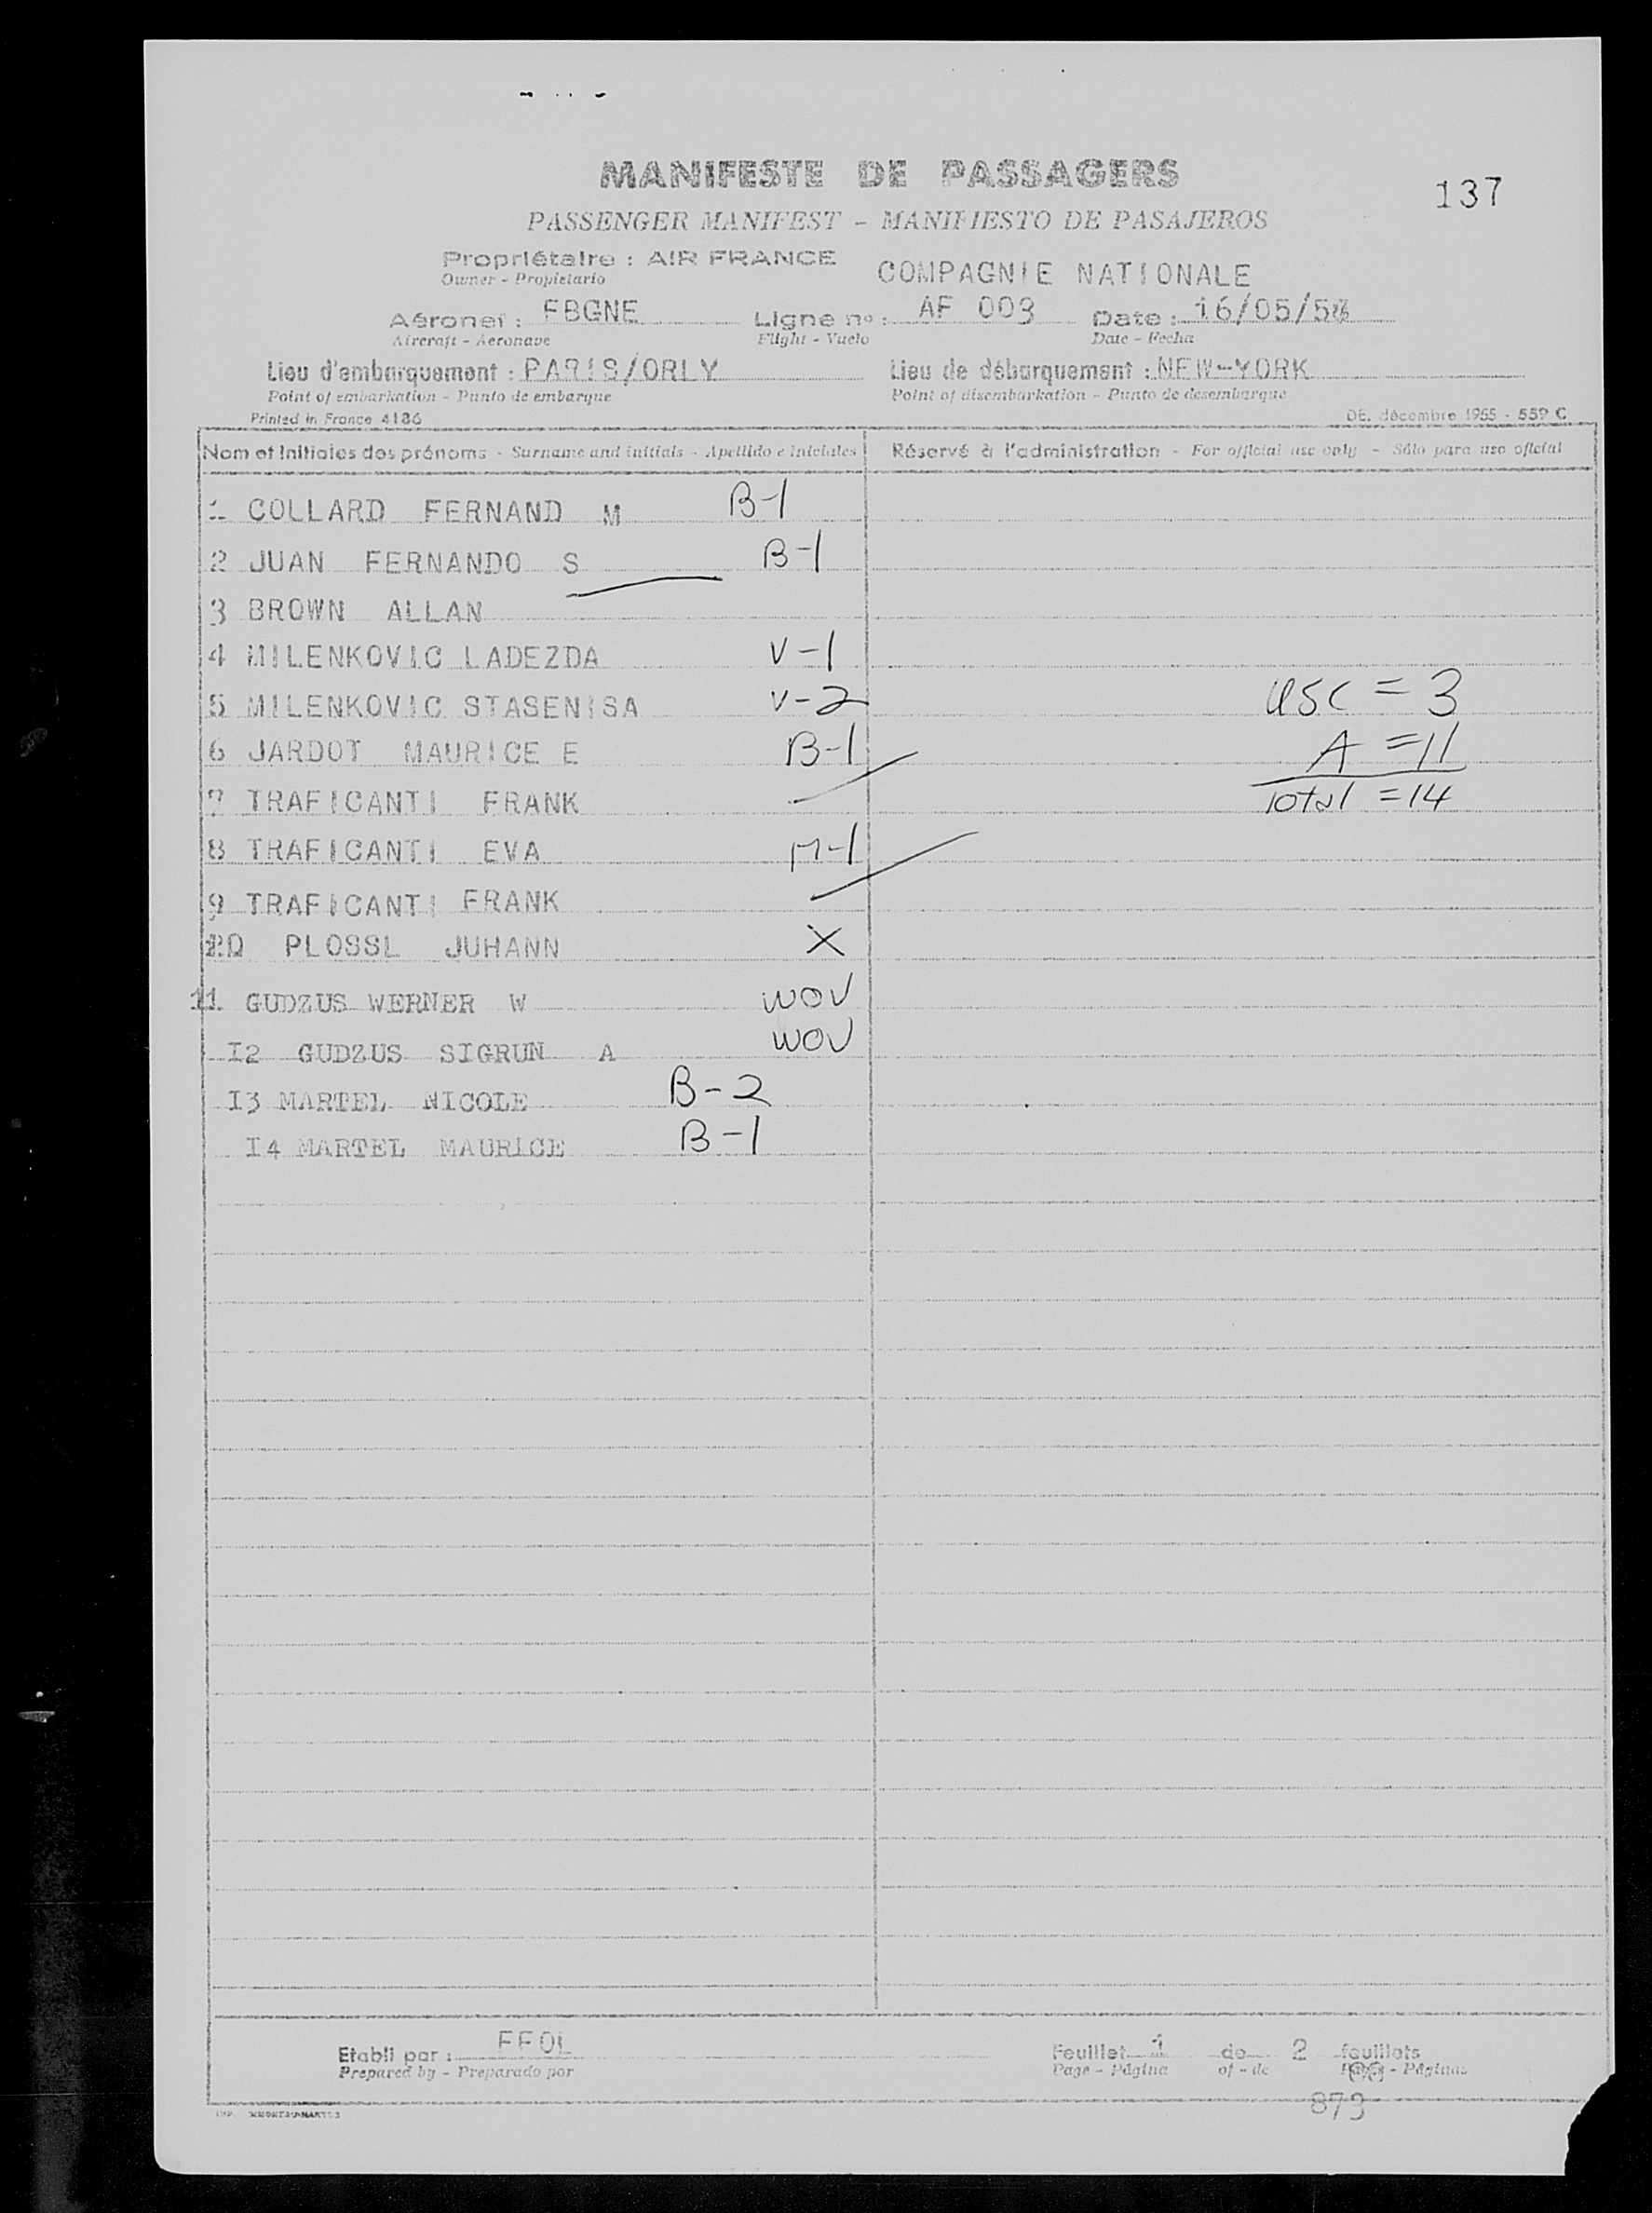 MANIFESTE DE PASSAGERS
137
PASSENGER MANIFEST - MANIFIESTO DE PASAJEROS
Propriétaire : AIR FRANCE
Owner - Propietario
COMPAGNIE NATIONALE
Aéronef : FBGNE Ligne nº : AF 003 Date : 16/05/58
Aircraft - Aeronave Flight - Vuelo Date - Fecha
Lieu d'embarquement : PARIS/ORLY Lieu de débarquement : NEW-YORK
Point of embarkation - Punto de embarque Point of disembarkation - Punto de desembarque
Printed in France 4186 DE. décembre 1955 - 559 C
Nom et initiales des prénoms - Surname and initials - Apellido e iniciales Réservé à l'administration - For official use only - Sólo para uso oficial
1 COLLARD FERNAND M B-1
2 JUAN FERNANDO S B-1
3 BROWN ALLAN
4 MILENKOVIC LADEZDA V-1
5 MILENKOVIC STASENISA V-2 USC = 3
6 JARDOT MAURICE E B-1 A = 11
7 TRAFICANTI FRANK Total = 14
8 TRAFICANTI EVA M-1
9 TRAFICANTI FRANK
10 PLOSSL JUHANN X
11 GUDZUS WERNER W WOV
I2 GUDZUS SIGRUN A WOV
I3 MARTEL NICOLE B-2
I4 MARTEL MAURICE B-1
Etabli par : FFOL Feuillet 1 de 2 feuillets
Prepared by - Preparado por Page - Página of - de - Páginas
873